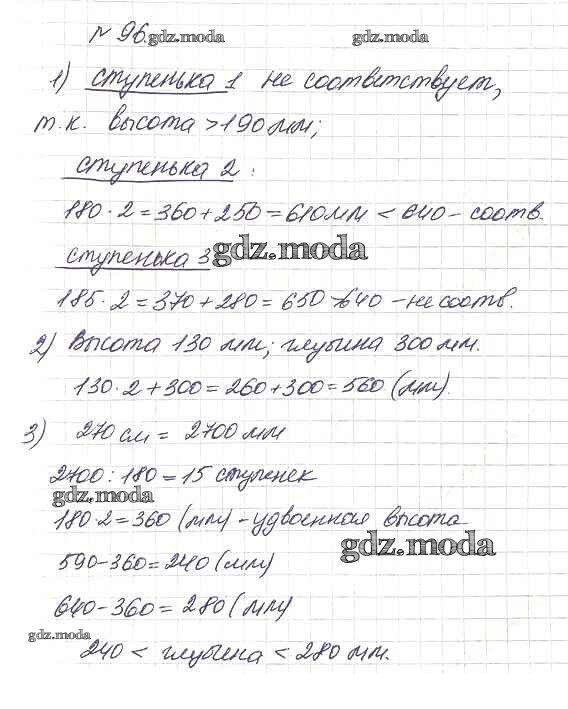 № 96. gdz.moda gdz.moda
1) ступенька 1 не соответствует,
т.к. высота >190 мм;
ступенька 2:
180·2=360+250=610мм < 640- соотв.
ступенька 3 gdz.moda
185·2=370+280=650>640 -не соотв.
2) Высота 130 мм; глубина 300 мм.
130·2+300=260+300=560 (мм).
3) 270 см = 2700 мм
2700:180=15 ступенек
gdz.moda
180·2=360 (мм) -удвоенная высота
gdz.moda
590-360=240 (мм)
640-360=280 (мм)
gdz.moda
240 < глубина < 280 мм.